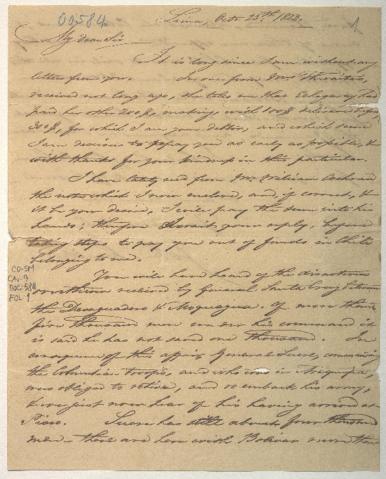 00584
1
Lima, Octr 25th 1823.
My dear Sir
It is long since I am without any
letter from you. In one from Mrs Thwaites,
received not long ago, she tells me that
paid her other 200$, making, with 100$
300$, for which I am your debtor, and which sum
I am desirous to repay you as early as possible,
with thanks for your kindness in this particular.
I have lately recd from Mr William Cochran
the note which I now enclose, and, if correct, &
it be your desire, I will pay the sum into his
hands; therefore I await your reply, before
taking steps to pay you out of funds in Chile
belonging to me.
You will have heard of the disastrous
overthrow received by General Santa Cruz between
the Desaguadero & Moquegua. Of more than
five thousand men under his command it
is said he has not saved one thousand. In
consequence of this affair, General Sucre, commanding
the Columbian troops, and who was in Arequipa
was obliged to retire, and re-embark his army,
& we just now hear of his having arrived at
Pisco. Sucre has still about four thousand
men – there are here with Bolivar more than
CO-SM
CA-9
DOC-584
FOL-1